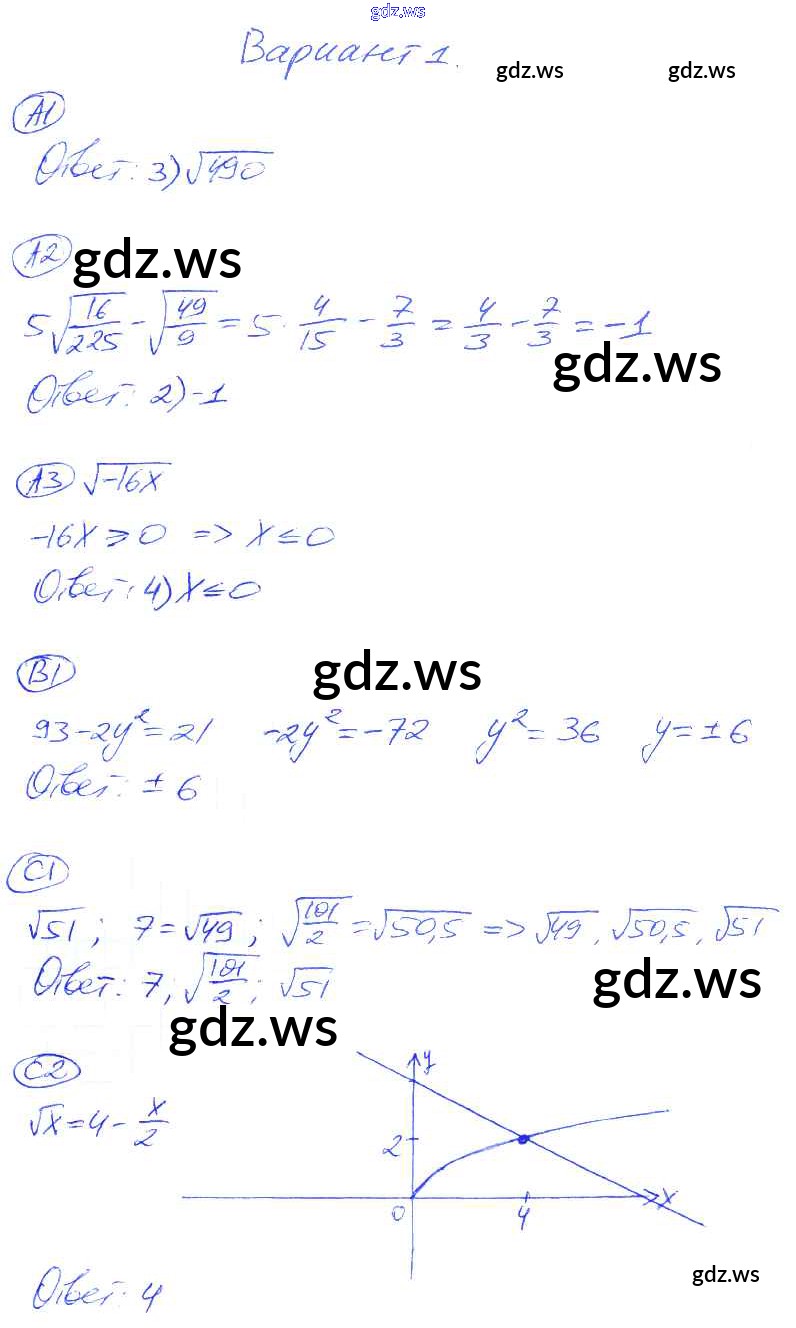 gdz.ws
Вариант 1.
gdz.ws gdz.ws
А1
Ответ: 3) √490
А2 gdz.ws
5√(16/225) - √(49/9) = 5 · 4/15 - 7/3 = 4/3 - 7/3 = -1
gdz.ws
Ответ: 2) -1
А3 √-16x
-16x ⩾ 0 => x ≤ 0
Ответ: 4) x ≤ 0
gdz.ws
В1
93 - 2y² = 21 -2y² = -72 y² = 36 y = ± 6
Ответ: ± 6
С1
√51 ; 7 = √49 ; √(101/2) = √50,5 => √49, √50,5, √51
Ответ: 7; √(101/2); √51
gdz.ws
gdz.ws
С2
y
√x = 4 - x/2
2
0 4 x
gdz.ws
Ответ: 4